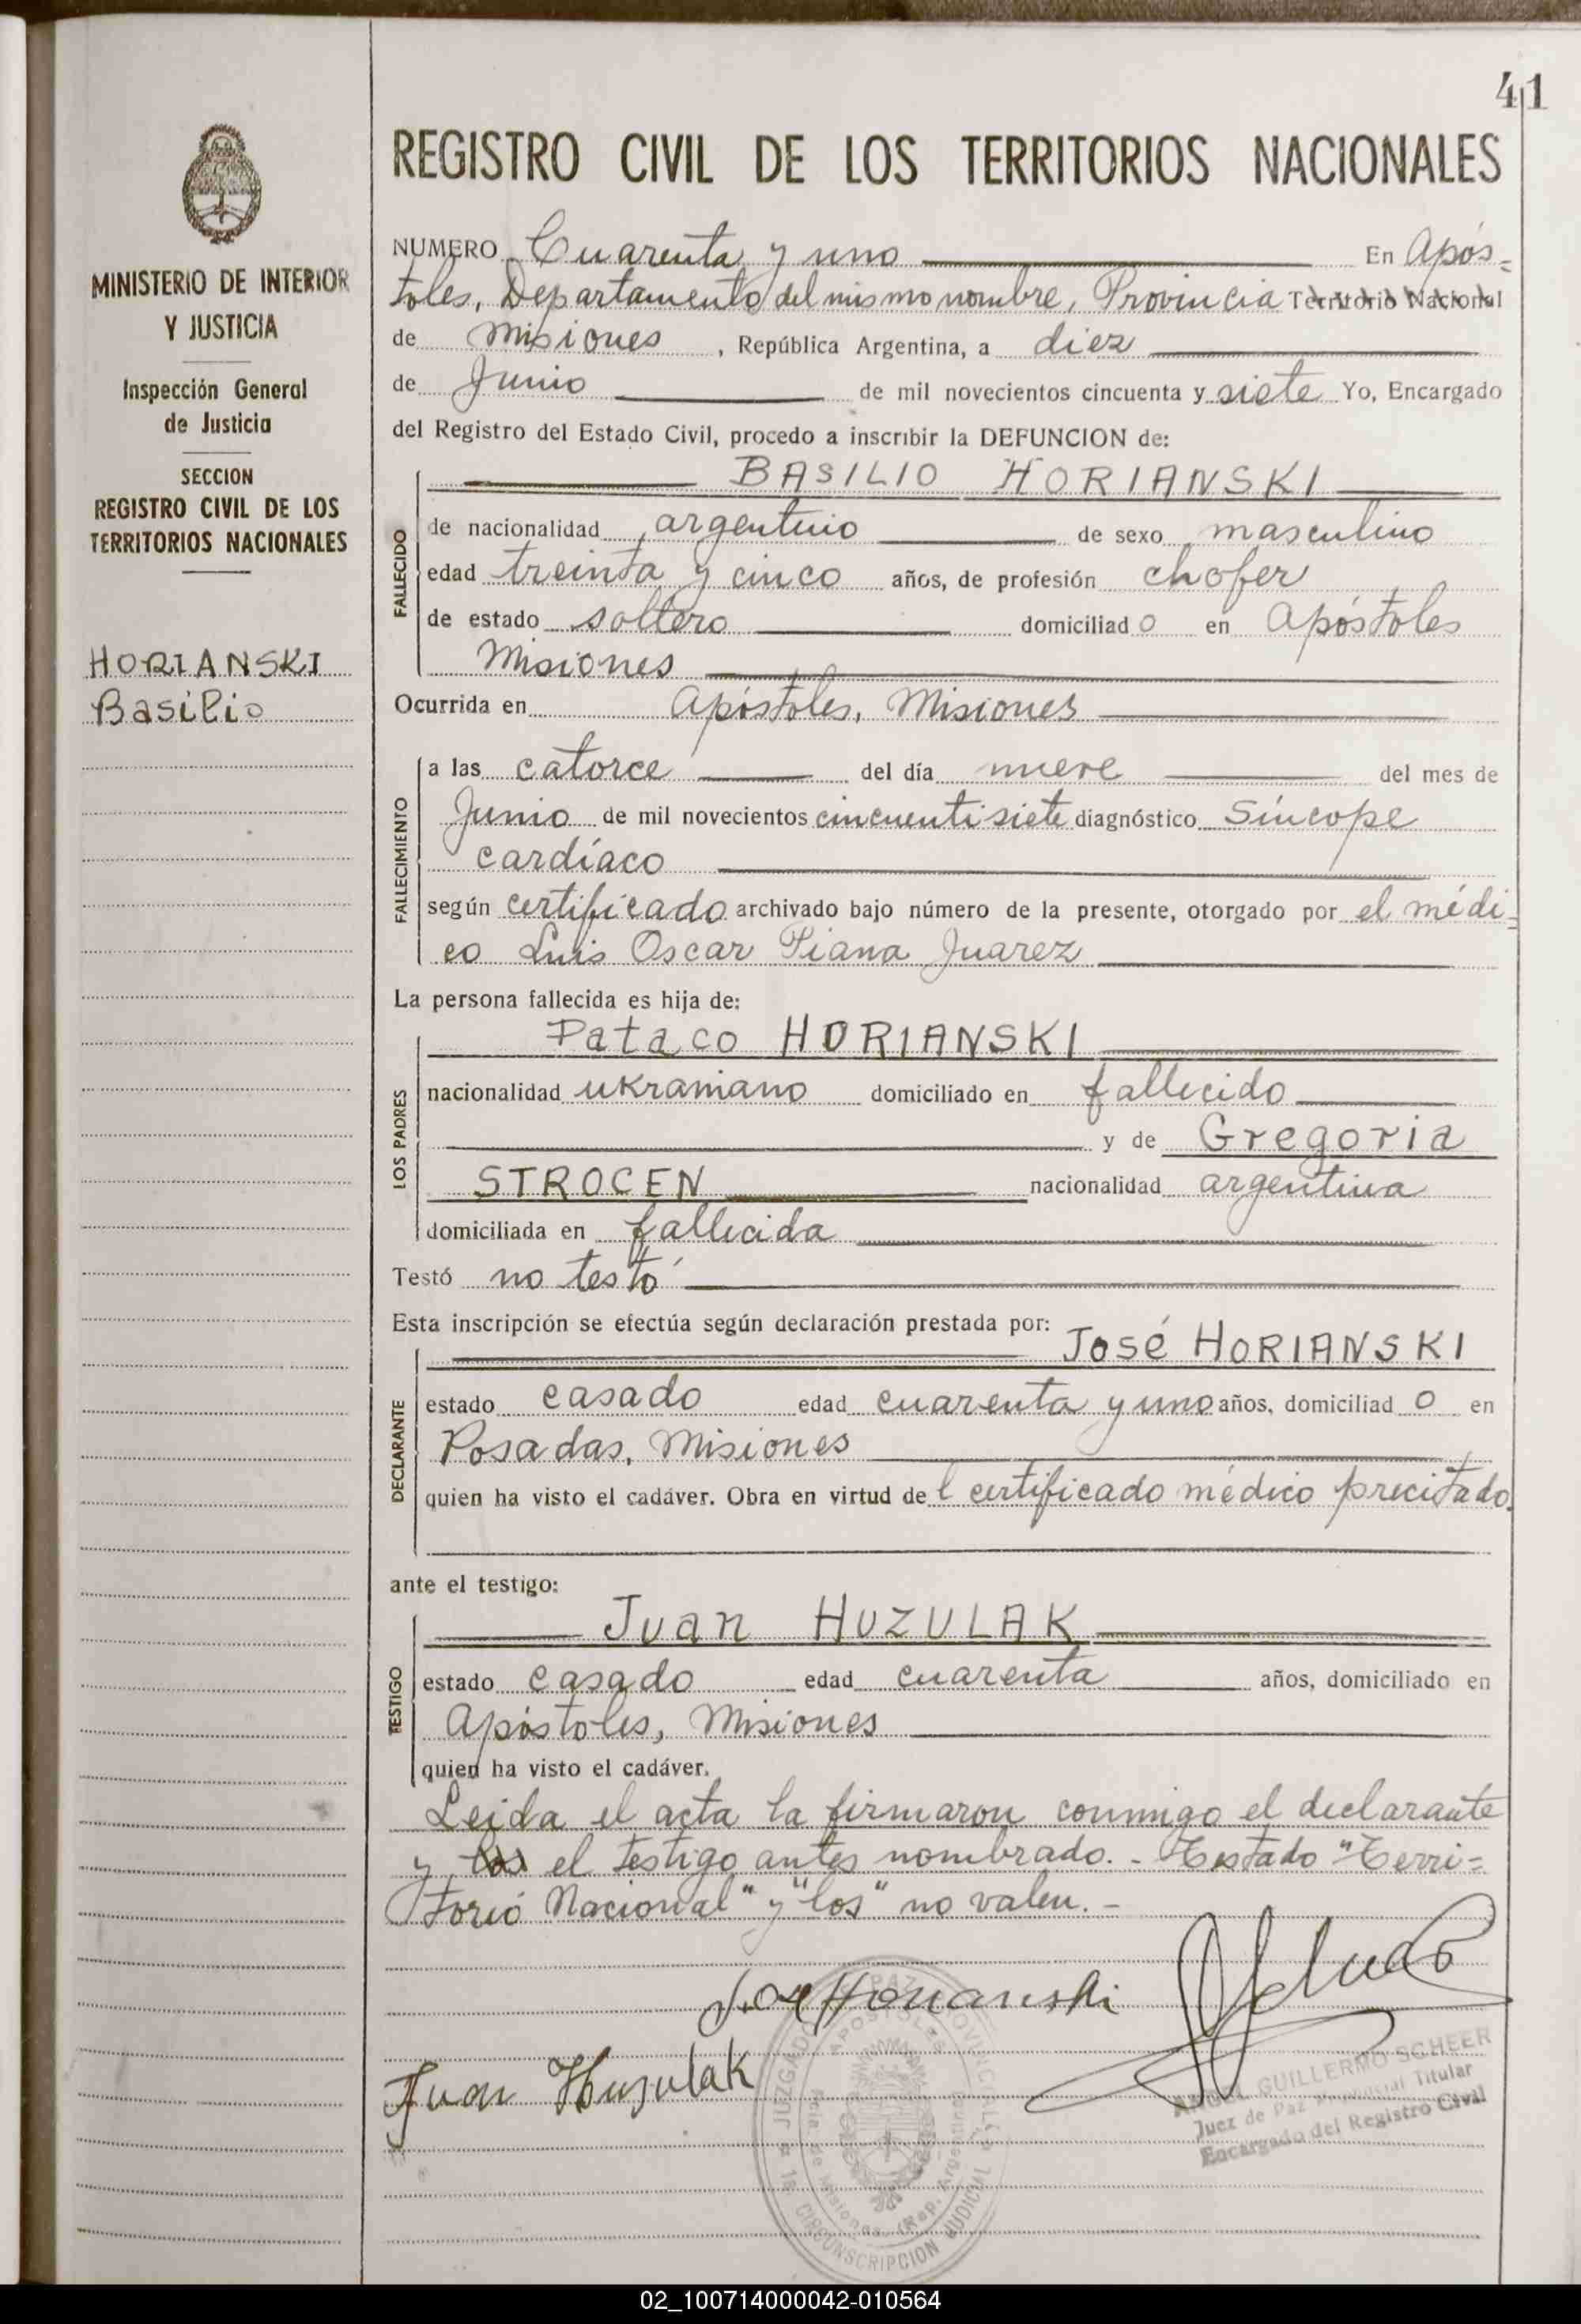 41
REGISTRO CIVIL DE LOS TERRITORIOS NACIONALES
MINISTERIO DE INTERIOR
Y JUSTICIA
Inspección General
de Justicia
SECCION
REGISTRO CIVIL DE LOS
TERRITORIOS NACIONALES
HORIANSKI
Basilio
NUMERO Cuarenta y uno En Após=
toles, Departamento del mismo nombre, Provincia Territorio Nacional
de Misiones, República Argentina, a diez
de Junio de mil novecientos cincuenta y siete Yo, Encargado
del Registro del Estado Civil, procedo a inscribir la DEFUNCION de:
FALLECIDO
BASILIO HORIANSKI
de nacionalidad argentino de sexo masculino
edad treinta y cinco años, de profesión chofer
de estado soltero domiciliado en Apóstoles
Misiones
Ocurrida en Apóstoles, Misiones
FALLECIMIENTO
a las catorce del día nueve del mes de
Junio de mil novecientos cincuentisiete diagnóstico Síncope
cardíaco
según certificado archivado bajo número de la presente, otorgado por el médi=
co Luis Oscar Piana Juarez
La persona fallecida es hija de:
LOS PADRES
Pataco HORIANSKI
nacionalidad ukraniano domiciliado en fallecido
y de Gregoria
STROCEN nacionalidad argentina
domiciliada en fallecida
Testó no testó
Esta inscripción se efectúa según declaración prestada por:
DECLARANTE
José HORIANSKI
estado casado edad cuarenta y uno años, domiciliado en
Posadas, Misiones
quien ha visto el cadáver. Obra en virtud del certificado médico precitado
ante el testigo:
TESTIGO
Juan HUZULAK
estado casado edad cuarenta años, domiciliado en
Apóstoles, Misiones
quien ha visto el cadáver.
Leida el acta la firmaron conmigo el declarante
y los el testigo antes nombrado.- Testado "Terri=
torio Nacional" y "los" no valen.-
José Horianski
Juan Huzulak
JUZGADO PAZ
APOSTOLES
1a CIRCUNSCRIPCION JUDICIAL
Pcia. de Misiones (Rep. Argentina)
ANGEL GUILLERMO SCHEER
Juez de Paz Provincial Titular
Encargado del Registro Civil
02_100714000042-010564